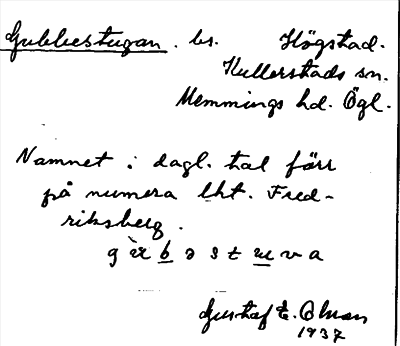 Gubbestugan. bs. Högstad.
Kullerstads sn.
Memmings hd. Ögl.
Namnet i dagl. tal förr
på numera lht. Fred-
riksberg.
Gustaf E. Olman
1937